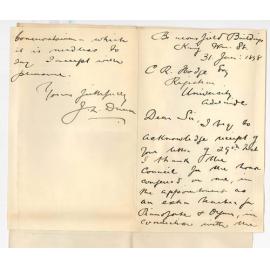 Beaconsfield Buildings
King Wm. St.
31 Jan: 1898
C R. Hodge Esq
Registrar
University
Adelaide
Dear Sir, I beg to
acknowledge receipt of
your letter of 29th Inst
I thank the
Council for the honor
conferred on me, in
the appointment as
an extra teacher for
Pianoforte & Organ, in
connection with the
Conservatorium which
it is needless to
say I accept with
pleasure.
Yours faithfully